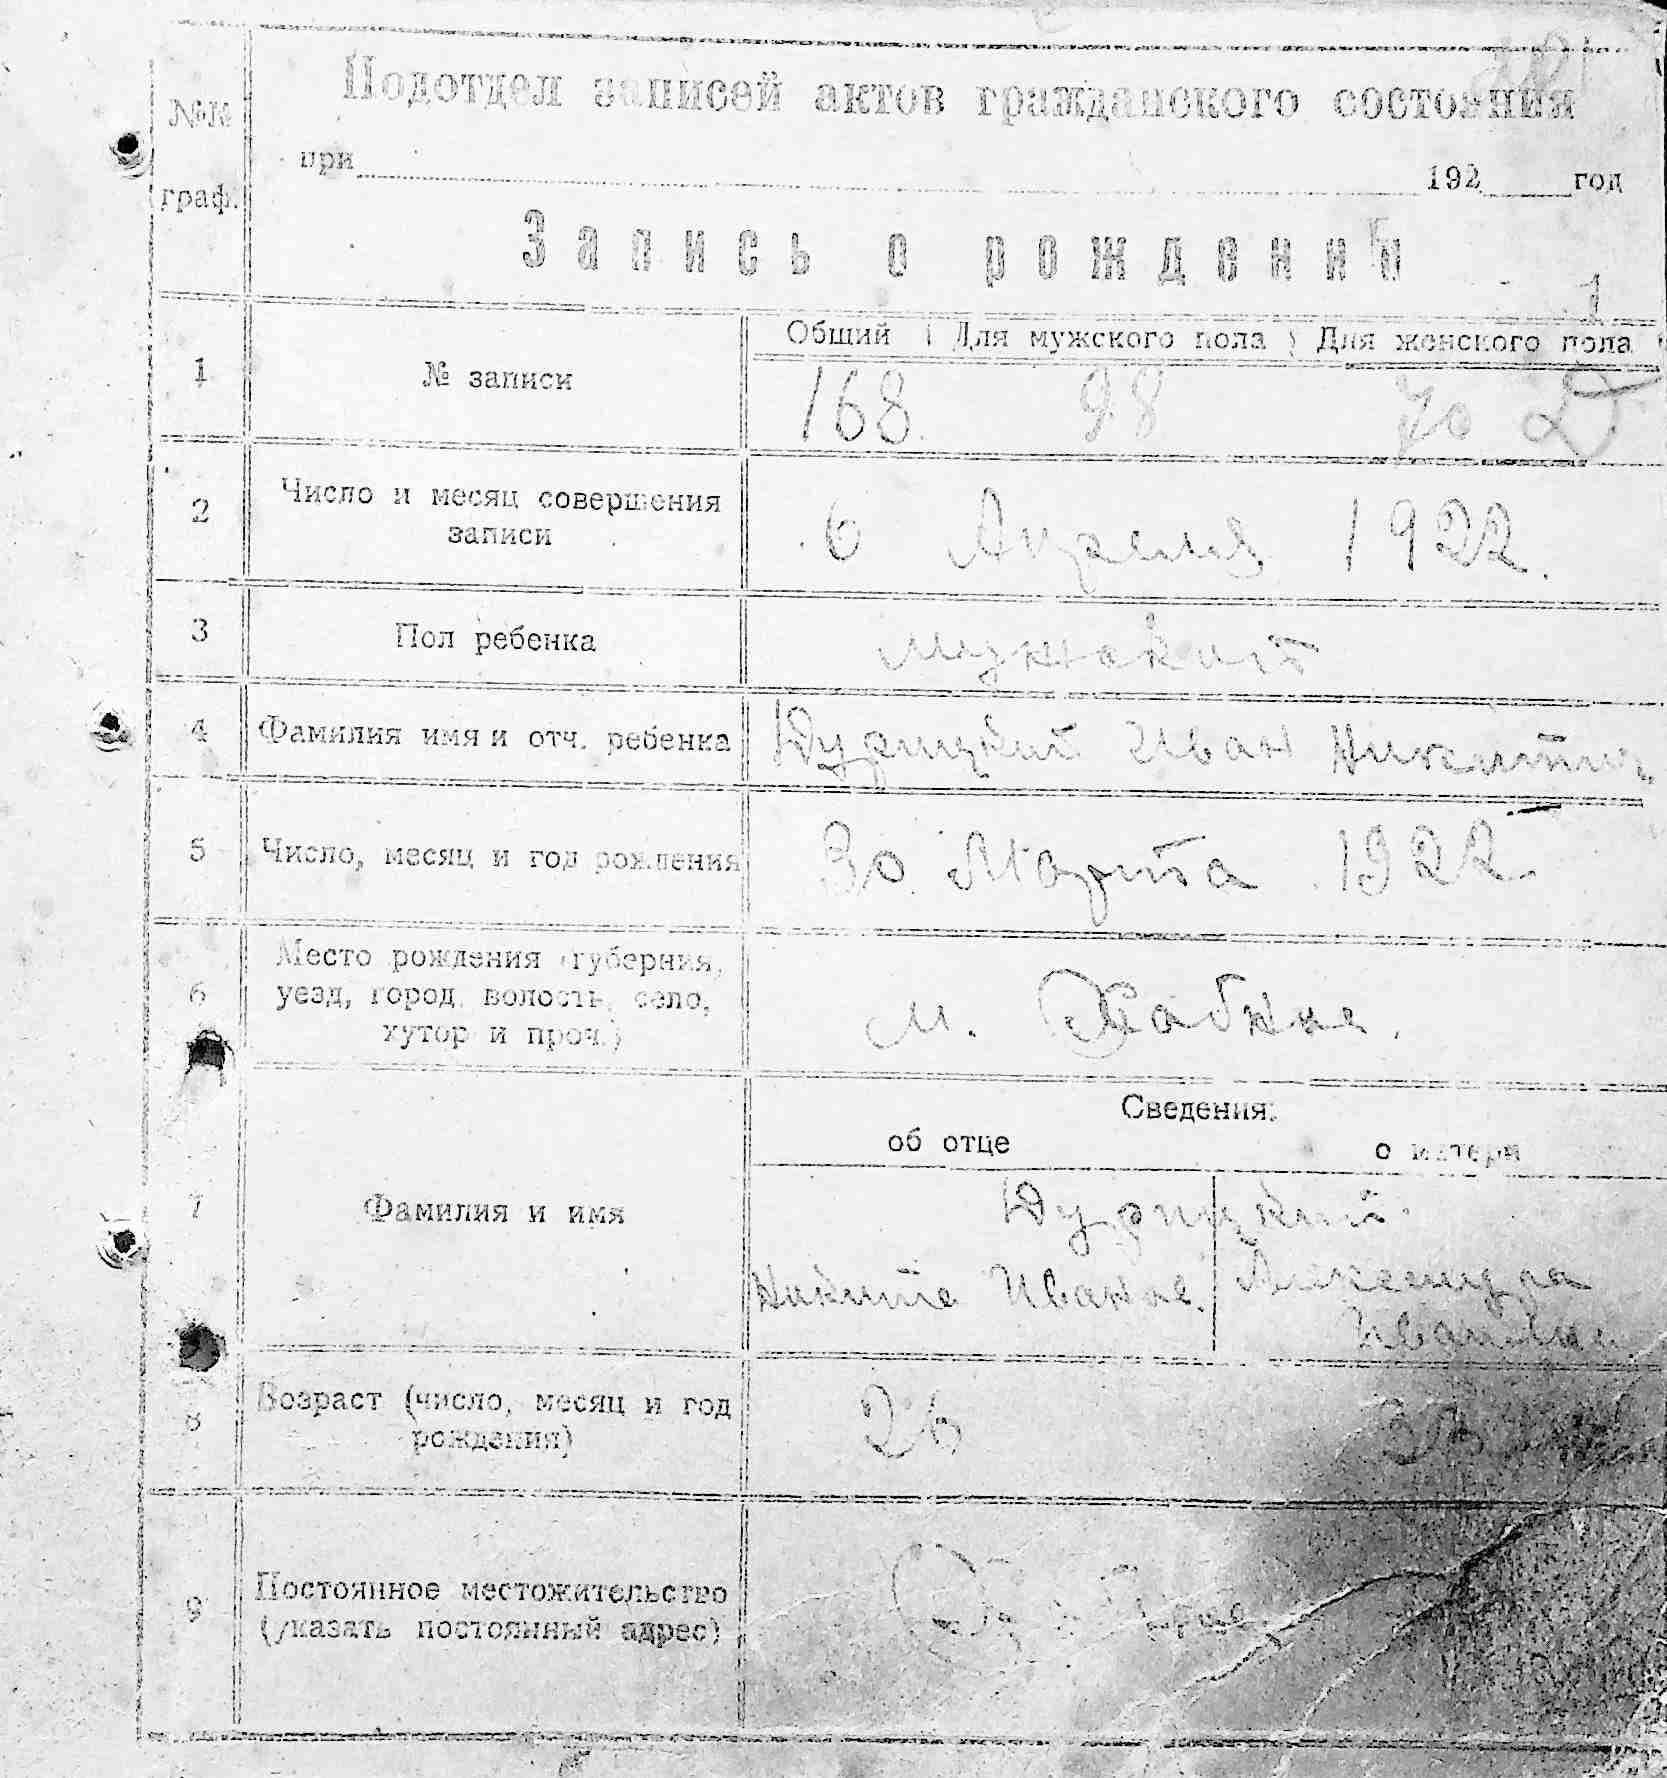 №№ граф.
Подотдел записей актов гражданского состояния
при 192 год
Запись о рождении
1
Общий Для мужского пола Для женского пола
1 № записи 168 98 70
2 Число и месяц совершения 6 Апреля 1922.
записи
3 Пол ребенка мужской
4 Фамилия имя и отч. ребенка Дурицкий Иван Никитич
5 Число, месяц и год рождения 30 Марта 1922.
Место рождения (губерния,
6 уезд, город, волость, село, м. Хабное.
хутор и проч.)
Сведения:
об отце о матери
7 Фамилия и имя Дурицкий
Никита Иванов. Александра
Иванова
8 Возраст (число, месяц и год 26
рождения)
9 Постоянное местожительство
(указать постоянный адрес)